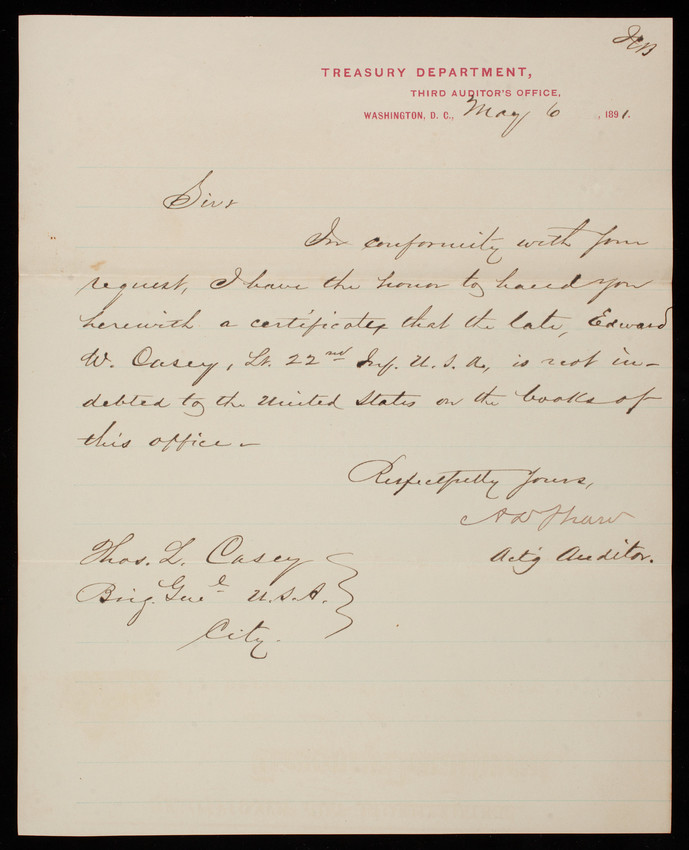 TREASURY DEPARTMENT,
THIRD AUDITOR'S OFFICE,
WASHINGTON, D. C., May 6, 1891.
Sir:
In conformity with your
request, I have the honor to hand you
herewith a certificate, that the late, Edward
W. Casey, Lt. 22nd Inf. U.S.A., is not in-
debted to the United States on the books of
this office.
Respectfully Yours,
A W Shaw
Act'g Auditor.
Thos. L. Casey
Brig. Gen'l U.S.A.
City.